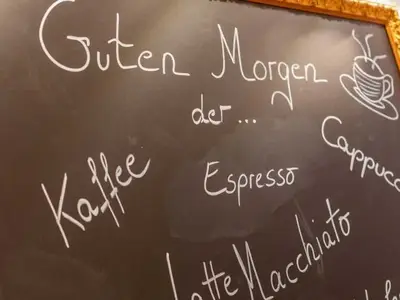 Guten Morgen
der...
Kaffee
Espresso
Cappucc
Latte Macchiato